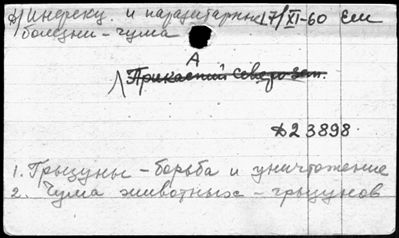 Инфекц. и паразитарные 17/XI-60
болезни - чума
А
Прикаспий Северо-зап.
Д23898.
1. Грызуны - борьба и уничтожение
2. Чума животных - грызунов